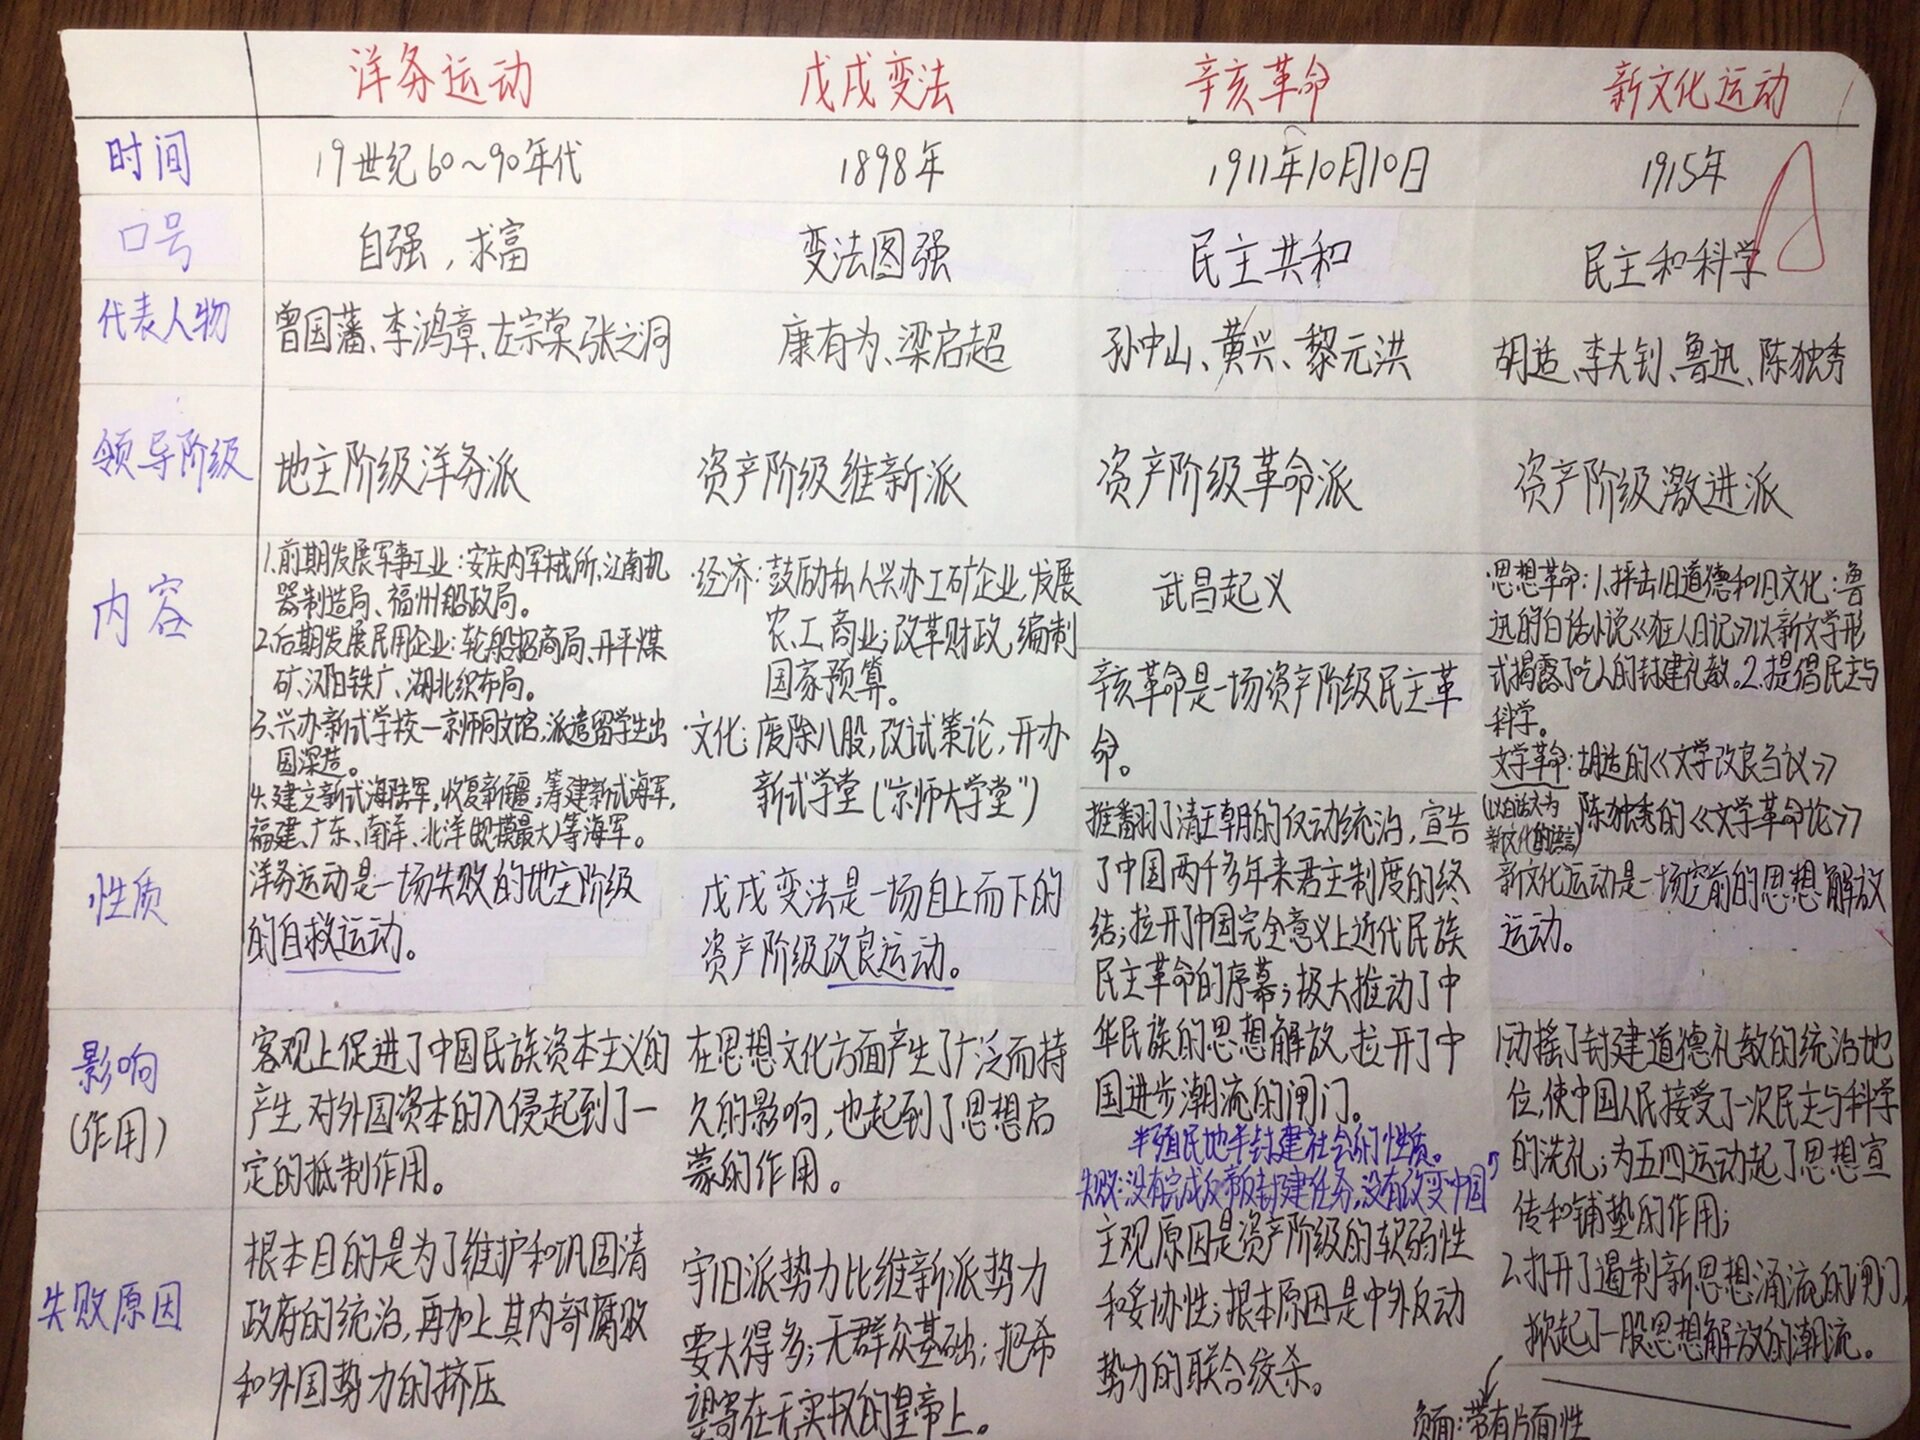 洋务运动 戊戌变法 辛亥革命 新文化运动
时间 19世纪60~90年代 1898年 1911年10月10日 1915年
口号 自强,求富 变法图强 民主共和 民主和科学
代表人物 曾国藩、李鸿章、左宗棠、张之洞 康有为、梁启超 孙中山、黄兴、黎元洪 胡适、李大钊、鲁迅、陈独秀
领导阶级 地主阶级洋务派 资产阶级维新派 资产阶级革命派 资产阶级激进派
内容
1.前期发展军事工业:安庆内军械所、江南机
器制造局、福州船政局。
2.后期发展民用企业:轮船招商局、开平煤
矿、汉阳铁厂、湖北织布局。
3.兴办新式学校—京师同文馆,派遣留学生出
国深造。
4.建立新式海陆军,收复新疆;筹建新式海军,
福建、广东、南洋、北洋(规模最大)等海军。
·经济:鼓励私人兴办工矿企业,发展
农、工、商业;改革财政,编制
国家预算。
·文化:废除八股,改试策论,开办
新式学堂("京师大学堂")
武昌起义
思想革命:1.抨击旧道德和旧文化:鲁
迅的白话小说《狂人日记》以新文学形
式揭露了吃人的封建礼教。2.提倡民主与
科学。
文学革命:胡适的《文学改良刍议》
(以白话文为
新文化的语言)
陈独秀的《文学革命论》
性质
洋务运动是一场失败的地主阶级
的自救运动。
戊戌变法是一场自上而下的
资产阶级改良运动。
辛亥革命是一场资产阶级民主革
命。
新文化运动是一场空前的思想解放
运动。
影响
(作用)
客观上促进了中国民族资本主义的
产生,对外国资本的入侵起到了一
定的抵制作用。
在思想文化方面产生了广泛而持
久的影响,也起到了思想启
蒙的作用。
推翻了清王朝的反动统治,宣告
了中国两千多年来君主制度的终
结;拉开了中国完全意义上近代民族
民主革命的序幕;极大推动了中
华民族的思想解放,拉开了中
国进步潮流的闸门。
半殖民地半封建社会的性质。
失败:没有完成反帝反封建任务,没有改变中国
1.动摇了封建道德礼教的统治地
位,使中国人民接受了一次民主与科学
的洗礼;为五四运动起了思想宣
传和铺垫的作用;
2.打开了遏制新思想涌流的闸门,
掀起了一股思想解放的潮流。
失败原因
根本目的是为了维护和巩固清
政府的统治,再加上其内部腐败
和外国势力的挤压
守旧派势力比维新派势力
要大得多;无群众基础;把希
望寄在无实权的皇帝上。
主观原因是资产阶级的软弱性
和妥协性;根本原因是中外反动
势力的联合绞杀。
负面:带有片面性